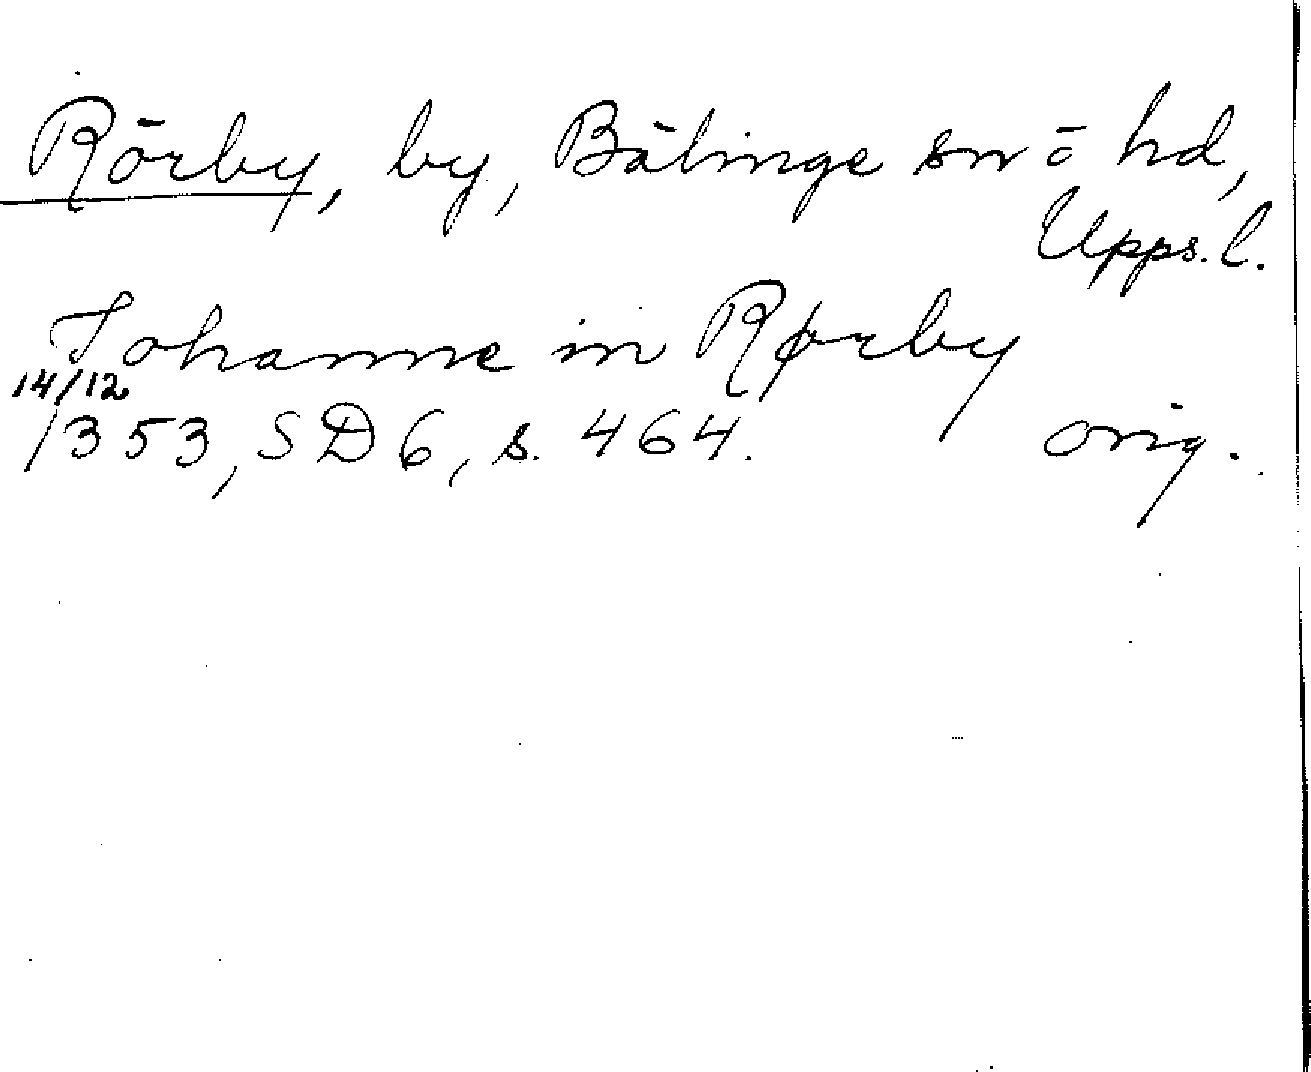 Rörby, by, Bälinge sn o hd,
Upps. l.
Johanne in Rørby
14/12
1353, SD 6, s. 464. orig.